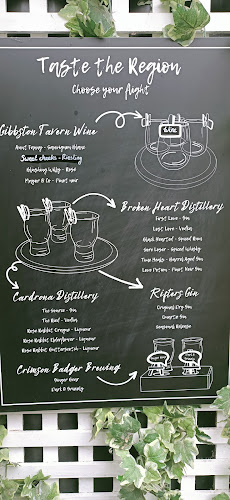 Taste the Region
Choose your flight
Gibbston Tavern Wine
Aunt Fanny - Sauvignon Blanc
Sweet cheeks - Riesling
Blushing Willy - Rosé
Mayor & Co - Pinot noir
Wine
Broken Heart Distillery
First Love - Gin
Lost Love - Vodka
Black Hearted - Spiced Rum
Sore Loser - Spiced Whisky
Time Heals - Barrel Aged Gin
Love Potion - Pinot Noir Gin
Cardrona Distillery
The Source - Gin
The Reid - Vodka
Rose Rabbit Orange - Liqueur
Rose Rabbit Elderflower - Liqueur
Rose Rabbit Butterscotch - Liqueur
Rifters Gin
Original Dry Gin
Quartz Gin
Seasonal Release
Crimson Badger Brewing
Ginger Beer
Dark & Broody